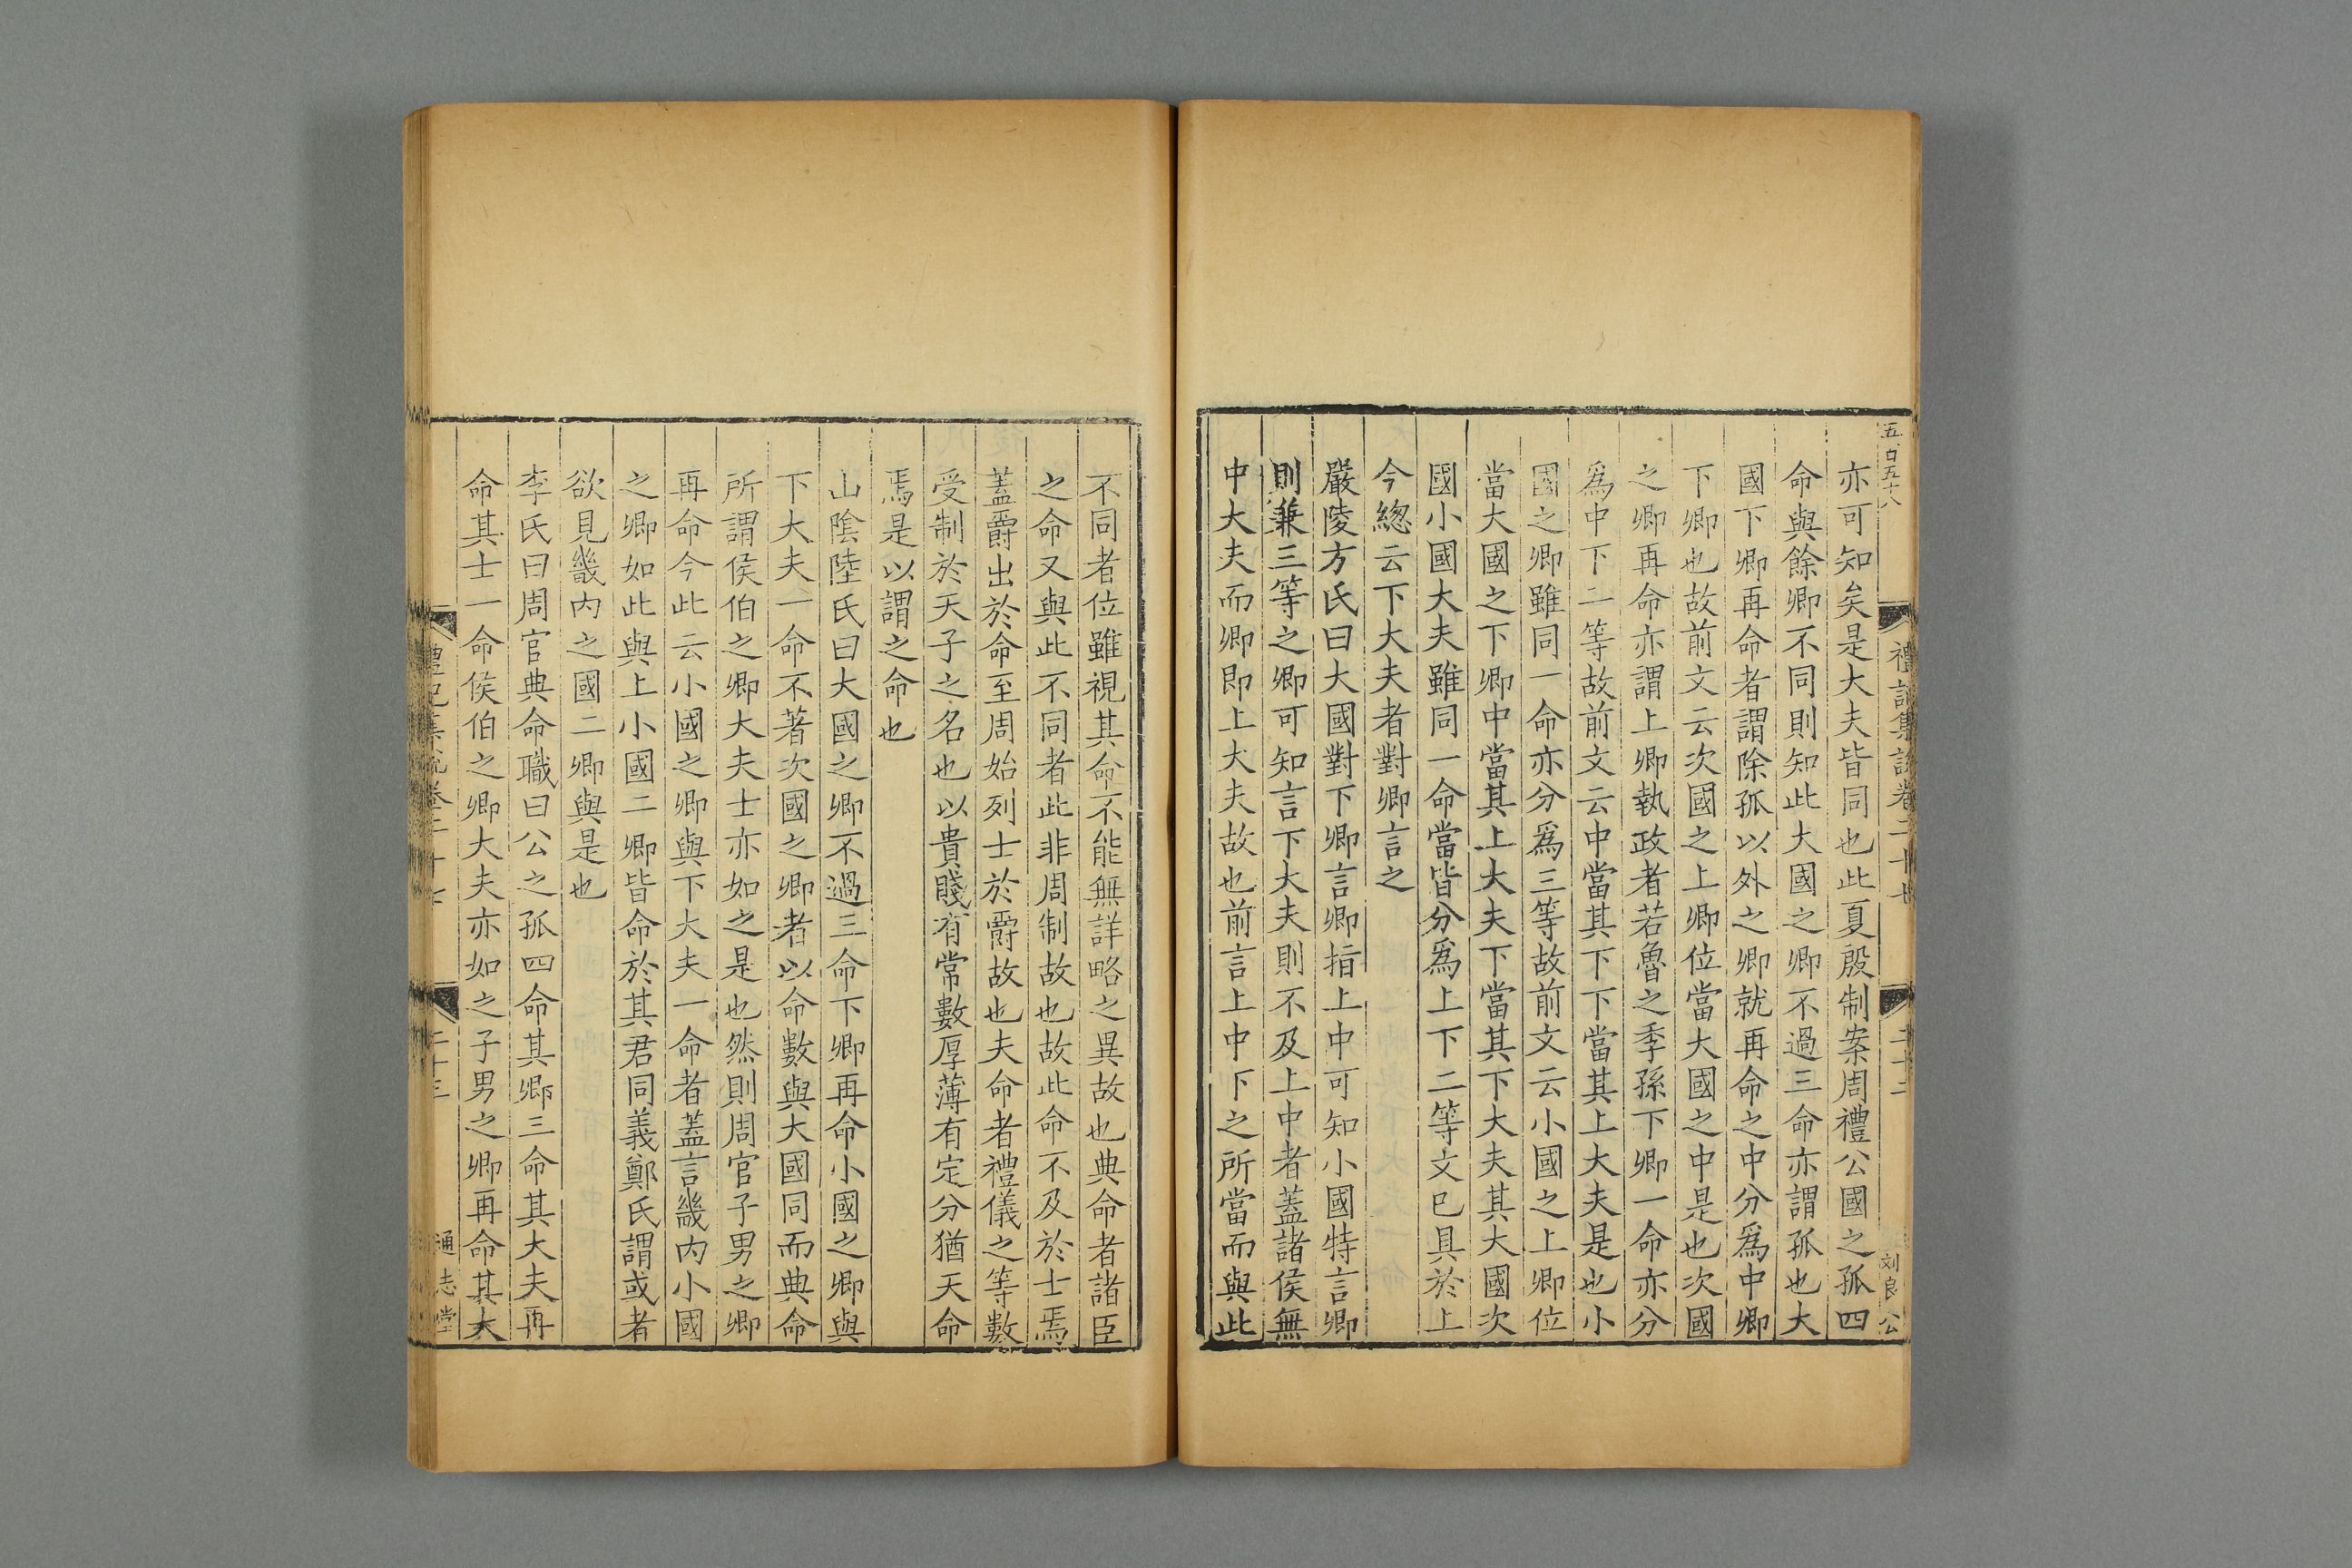 五百五十八
禮記集說卷二十七
二十二
刘良公
亦可知矣是大夫皆同也此夏殷制案周禮公國之孤四
命與餘卿不同則知此大國之卿不過三命亦謂孤也大
國下卿再命者謂除孤以外之卿就再命之中分爲中卿
下卿也故前文云次國之上卿位當大國之中是也次國
之卿再命亦謂上卿執政者若魯之季孫下卿一命亦分
爲中下二等故前文云中當其下下當其上大夫是也小
國之卿雖同一命亦分爲三等故前文云小國之上卿位
當大國之下卿中當其上大夫下當其下大夫其大國次
國小國大夫雖同一命當皆分爲上下二等文已具於上
今緫云下大夫者對卿言之
嚴陵方氏曰大國對下卿言卿指上中可知小國特言卿
則兼三等之卿可知言下大夫則不及上中者蓋諸侯無
中大夫而卿即上大夫故也前言上中下之所當而與此
不同者位雖視其命不能無詳略之異故也典命者諸臣
之命又與此不同者此非周制故也故此命不及於士焉
蓋爵出於命至周始列士於爵故也夫命者禮儀之等數
受制於天子之名也以貴賤有常數厚薄有定分猶天命
焉是以謂之命也
山陰陸氏曰大國之卿不過三命下卿再命小國之卿與
下大夫一命不著次國之卿者以命數與大國同而典命
所謂侯伯之卿大夫士亦如之是也然則周官子男之卿
再命今此云小國之卿與下大夫一命者蓋言畿內小國
之卿如此與上小國二卿皆命於其君同義鄭氏謂或者
欲見畿內之國二卿與是也
李氏曰周官典命職曰公之孤四命其卿三命其大夫再
命其士一命侯伯之卿大夫亦如之子男之卿再命其大
禮記集說卷二十七
二十三
通志堂